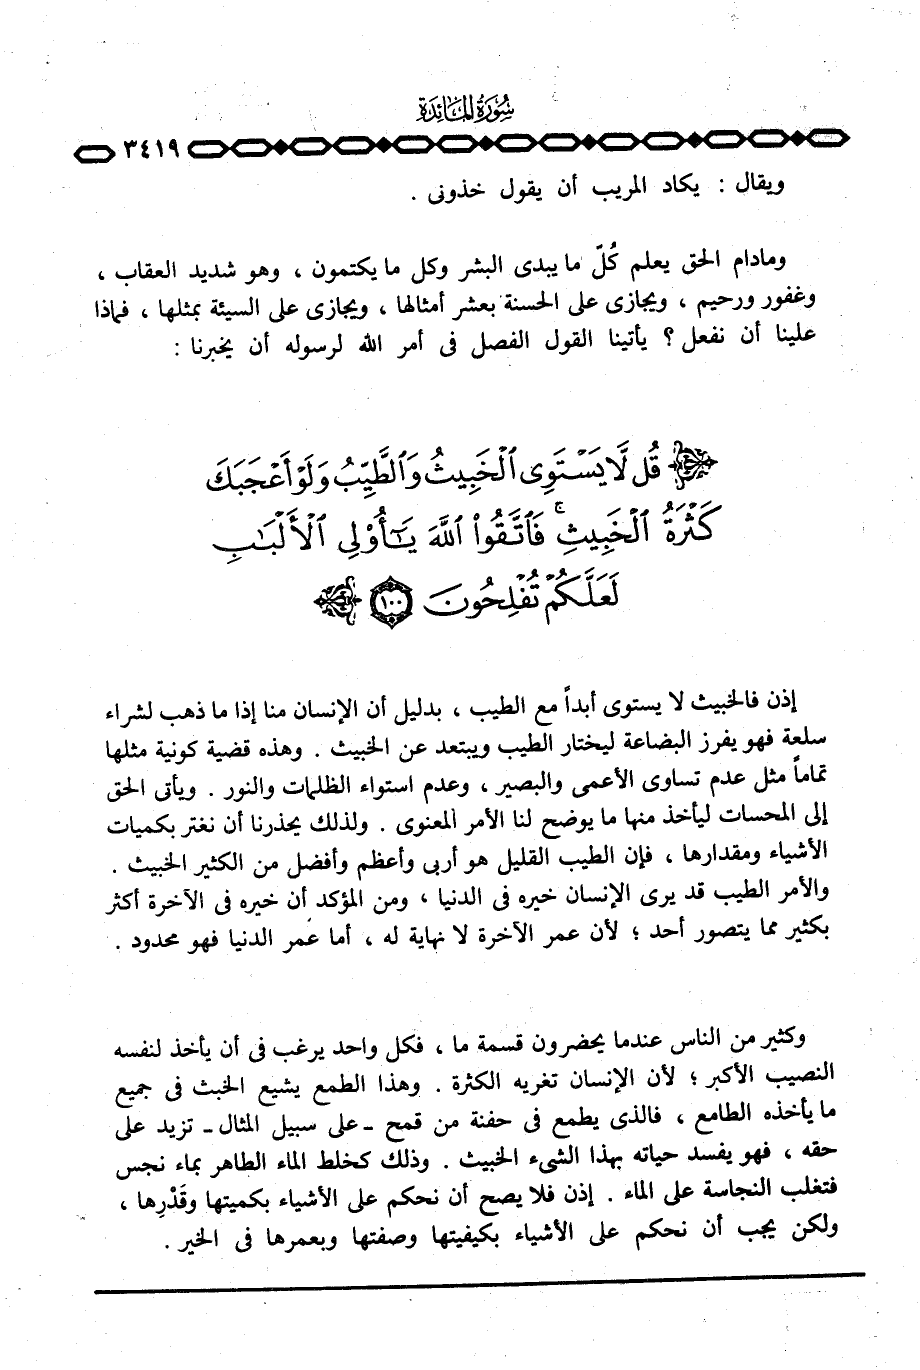 سُورَةُ المَائِدَة
٣٤١٩
ويقال : يكاد المريب أن يقول خذونى .
ومادام الحق يعلم كُلّ ما يبدى البشر وكل ما يكتمون ، وهو شديد العقاب ،
وغفور ورحيم ، ويجازى على الحسنة بعشر أمثالها ، ويجازى على السيئة بمثلها ، فماذا
علينا أن نفعل ؟ يأتينا القول الفصل فى أمر الله لرسوله أن يخبرنا :
قُل لَّا يَسْتَوِى ٱلْخَبِيثُ وَٱلطَّيِّبُ وَلَوْ أَعْجَبَكَ
كَثْرَةُ ٱلْخَبِيثِ ۚ فَٱتَّقُوا۟ ٱللَّهَ يَـٰٓأُو۟لِى ٱلْأَلْبَـٰبِ
لَعَلَّكُمْ تُفْلِحُونَ ١٠٠
إذن فالخبيث لا يستوى أبداً مع الطيب ، بدليل أن الإنسان منا إذا ما ذهب لشراء
سلعة فهو يفرز البضاعة ليختار الطيب ويبتعد عن الخبيث . وهذه قضية كونية مثلها
تماماً مثل عدم تساوى الأعمى والبصير ، وعدم استواء الظلمات والنور . ويأتى الحق
إلى المحسات ليأخذ منها ما يوضح لنا الأمر المعنوى . ولذلك يحذرنا أن نغتر بكميات
الأشياء ومقدارها ، فإن الطيب القليل هو أربى وأعظم وأفضل من الكثير الخبيث .
والأمر الطيب قد يرى الإنسان خيره فى الدنيا ، ومن المؤكد أن خيره فى الآخرة أكثر
بكثير مما يتصور أحد ؛ لأن عمر الآخرة لا نهاية له ، أما عمر الدنيا فهو محدود .
وكثير من الناس عندما يحضرون قسمة ما ، فكل واحد يرغب فى أن يأخذ لنفسه
النصيب الأكبر ؛ لأن الإنسان تغريه الكثرة . وهذا الطمع يشيع الخبث فى جميع
ما يأخذه الطامع ، فالذى يطمع فى حفنة من قمح ـ على سبيل المثال ـ تزيد على
حقه ، فهو يفسد حياته بهذا الشىء الخبيث . وذلك كخلط الماء الطاهر بماء نجس
فتغلب النجاسة على الماء . إذن فلا يصح أن نحكم على الأشياء بكميتها وقَدْرِها ،
ولكن يجب أن نحكم على الأشياء بكيفيتها وصفتها وبعمرها فى الخير .